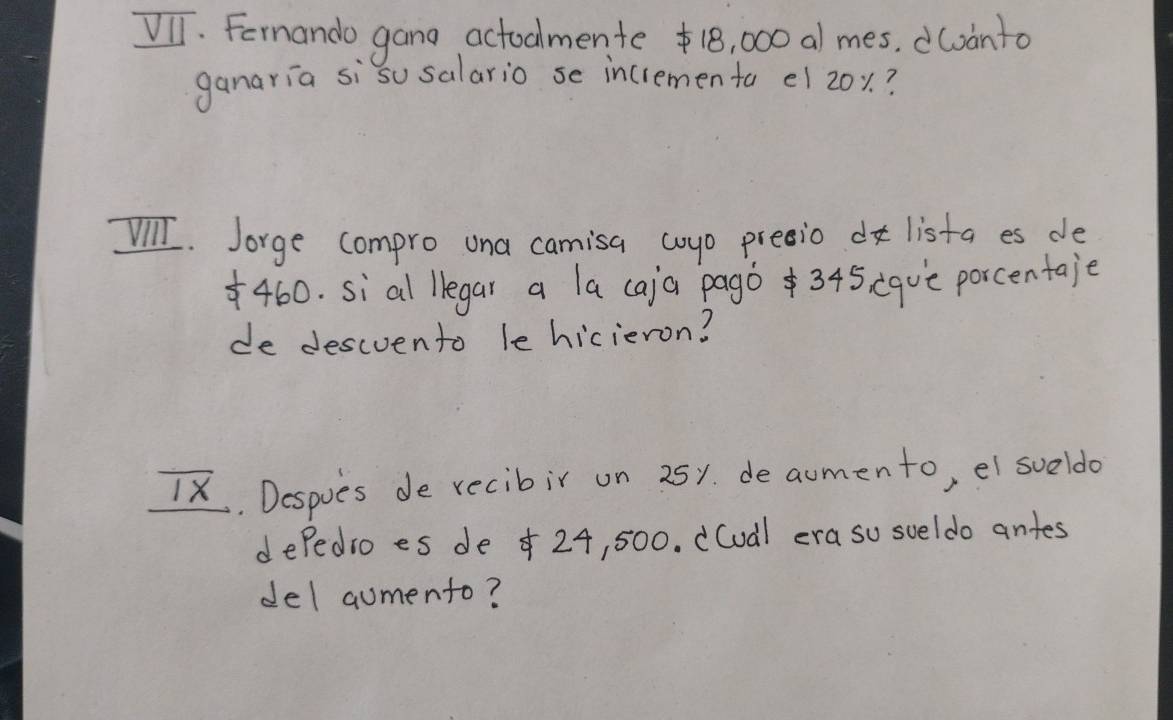 VII. Fernando gana actualmente $18,000 al mes. ¿Cuánto
ganaría si su salario se incrementa el 20%?
VIII. Jorge compro una camisa cuyo precio de lista es de
$460. si al llegar a la caja pagó $345, ¿qué porcentaje
de descuento le hicieron?
IX. Después de recibir un 25% de aumento, el sueldo
de Pedro es de $24,500. ¿Cuál era su sueldo antes
del aumento?